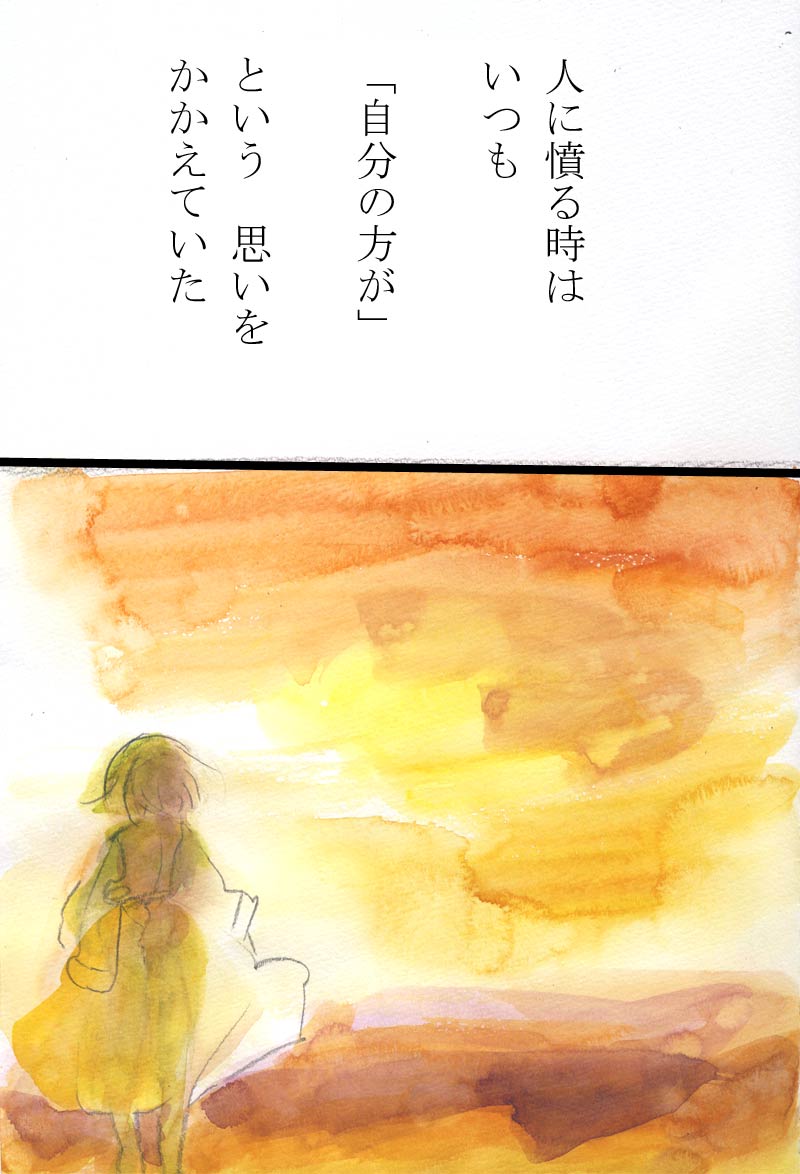 人に憤る時は
いつも
「自分の方が」
という　思いを
かかえていた